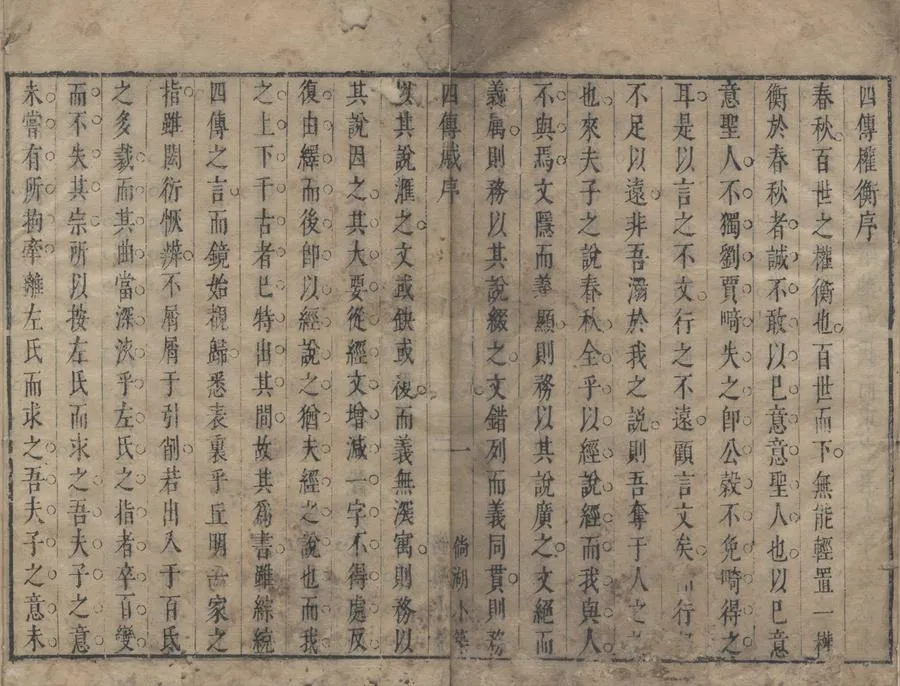 四傳權衡序
春秋百世之權衡也百世而下無能輕置一擬
衡於春秋者誠不敢以巳意意聖人也以巳意
意聖人不獨劉賈畸失之卽公穀不免畸得之
耳是以言之不文行之不遠顧言文矣而行
不足以遠非吾溺於我之説則吾奪于人之
也來夫子之説春秋全乎以經説經而我與人
不與焉文隱而義顯則務以其説廣之文絕而
義屬則務以其説綴之文錯列而義同貫則務
四傳序
一
倘湖小築
以其説滙之文或缺或後而義無淺寓則務以
其説因之其大要從經文增减一字不得處反
復由繹而後卽以經説之猶夫經之説也而我
之上下千古者巳特出其間故其為書雖綜統
四傳之言而鏡始擬歸悉表裏乎丘明一家之
指雖閎衍恢辨不屑屑于引削若出入于百氏
之多載而其曲當深浹乎左氏之指者卒百變
而不失其宗所以按左氏而求之吾夫子之意
未嘗有所拘牽離左氏而求之吾夫子之意未